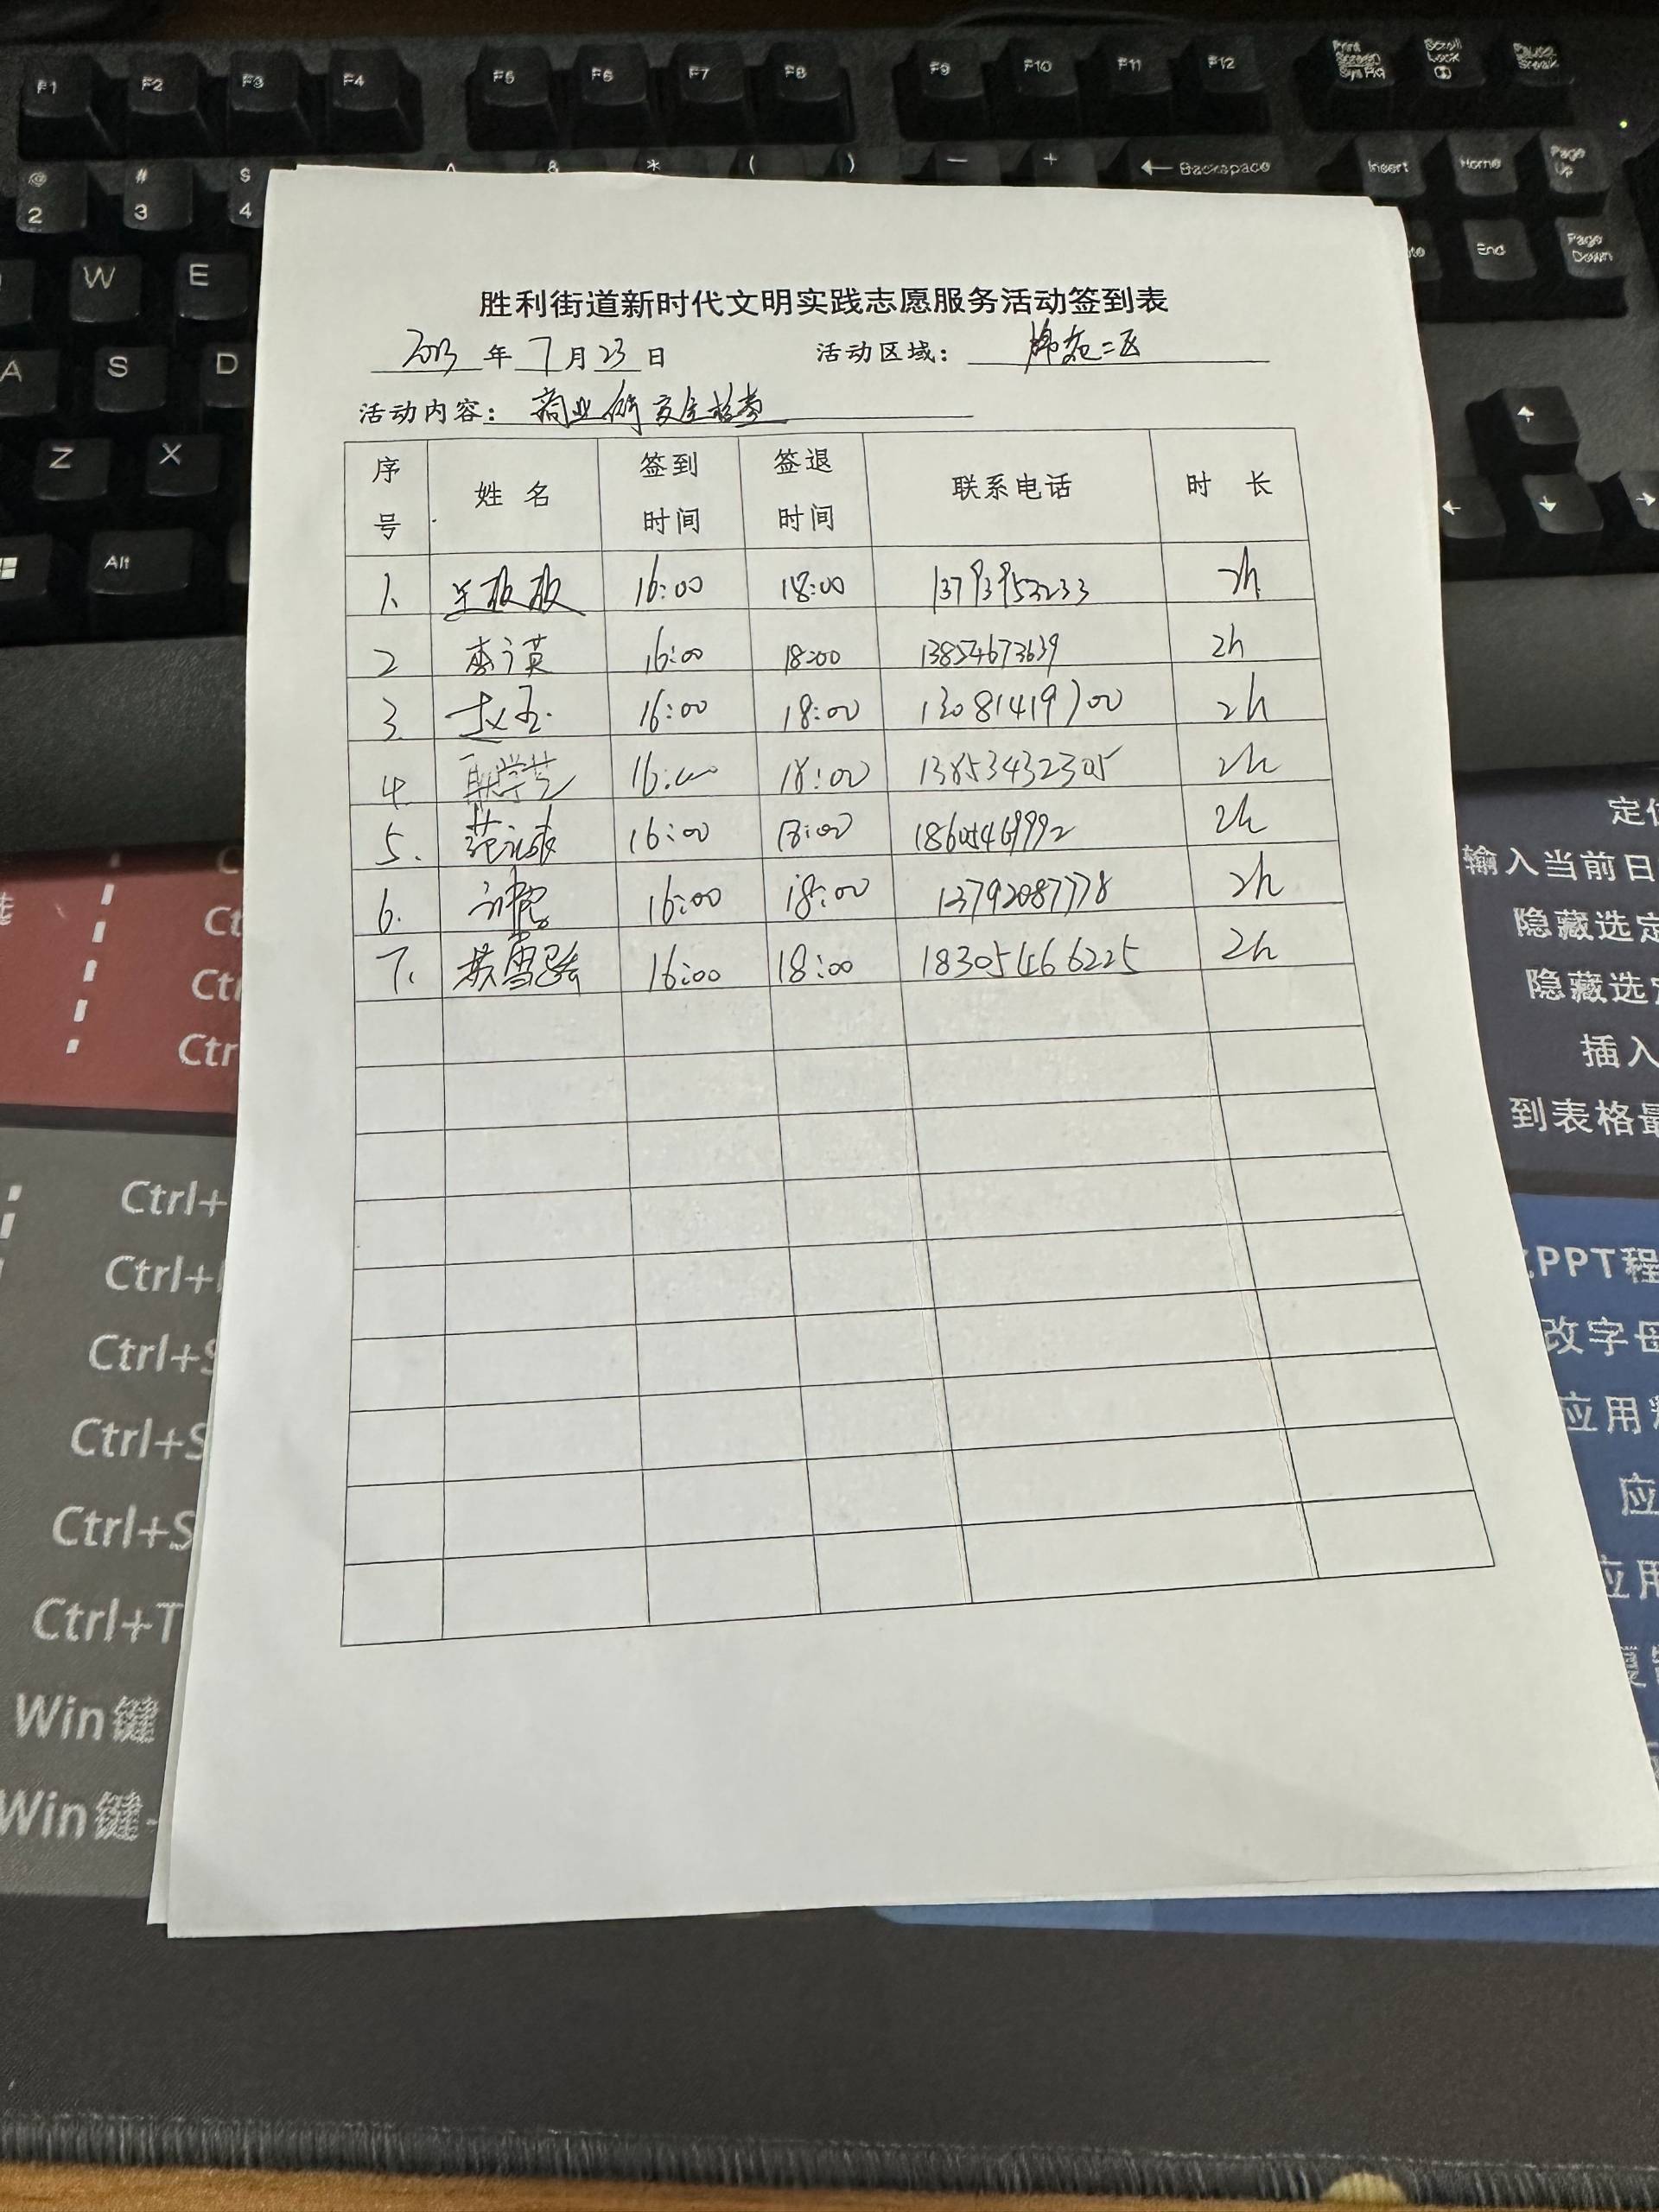 F1 F2 F3 F4 F5 F6 F7 F8 F9 F10 F11 F12 Print Screen SysRq Scroll Lock Pause Break
@ 2 # 3 $ 4 & * ( ) — + ← Backspace Insert Home Page Up
W E End Page Down
A S D
Z X
Alt
胜利街道新时代文明实践志愿服务活动签到表
2023 年 7 月 23 日 活动区域： 锦苑二区
活动内容： 商业街安全检查
序号 姓名 签到时间 签退时间 联系电话 时长
1. 16:00 18:00 13793953233 2h
2 李广英 16:00 18:00 13854673639 2h
3. 赵玉 16:00 18:00 13081419700 2h
4. 16:00 18:00 13853432305 2h
5. 16:00 18:00 2h
6. 16:00 18:00 13792087778 2h
7. 16:00 18:00 18305466225 2h
Ctrl+
Ctrl+
Ctrl+S
Ctrl+S
Ctrl+S
Ctrl+T
Win键
Win键
输入当前日
隐藏选定
隐藏选定
插入
到表格最
PPT程
改字母
应用
应
应用